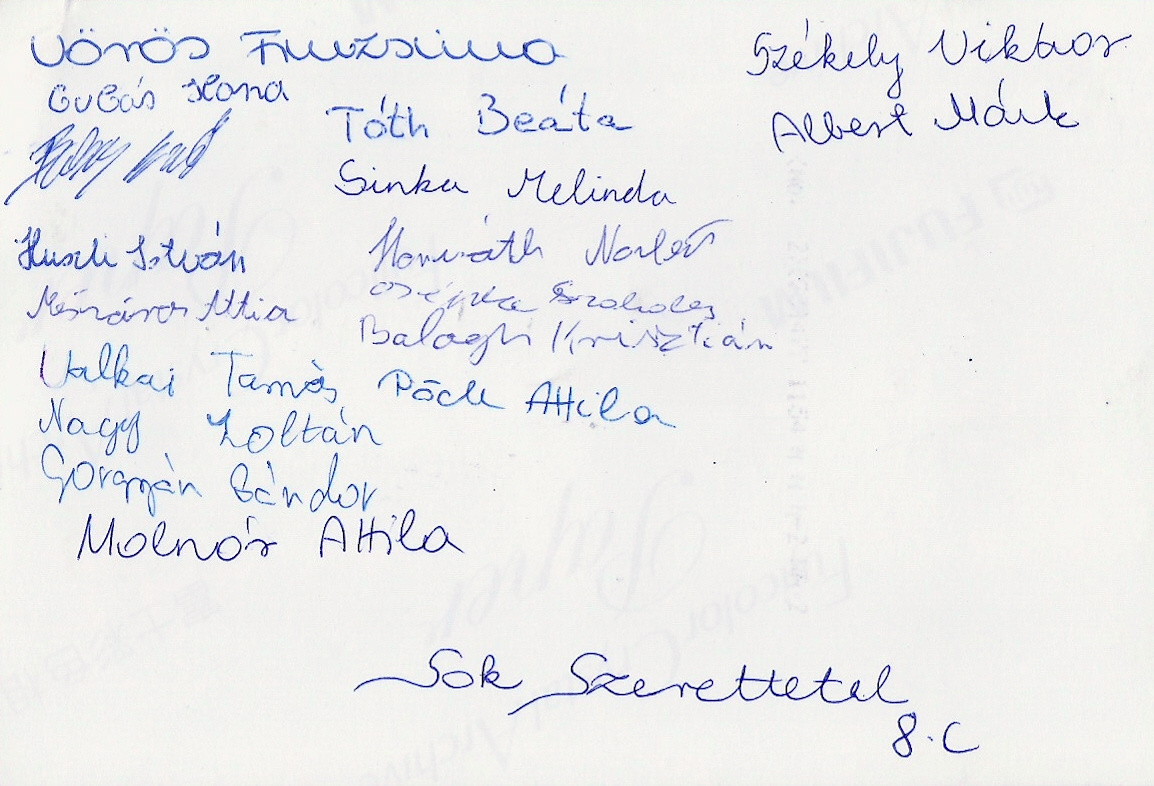 Vörös Fruzsina
Gulás Ilona
Tóth Beáta
Sinka Melinda
Huszti István
Horváth Norbert
Mészáros Attia
Szabolcs
Balogh Krisztián
Valkai Tamás
Pőcle Attila
Nagy Zoltán
Gorgyán Sándor
Molnár Attila
Székely Viktor
Albert Márk
Sok Szerettetel
8.C